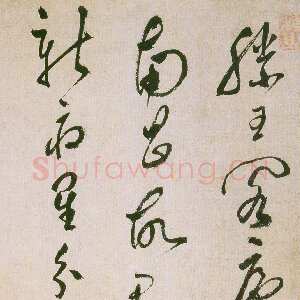 滕王閣序
南昌故
新府星分
Shufawang.cn